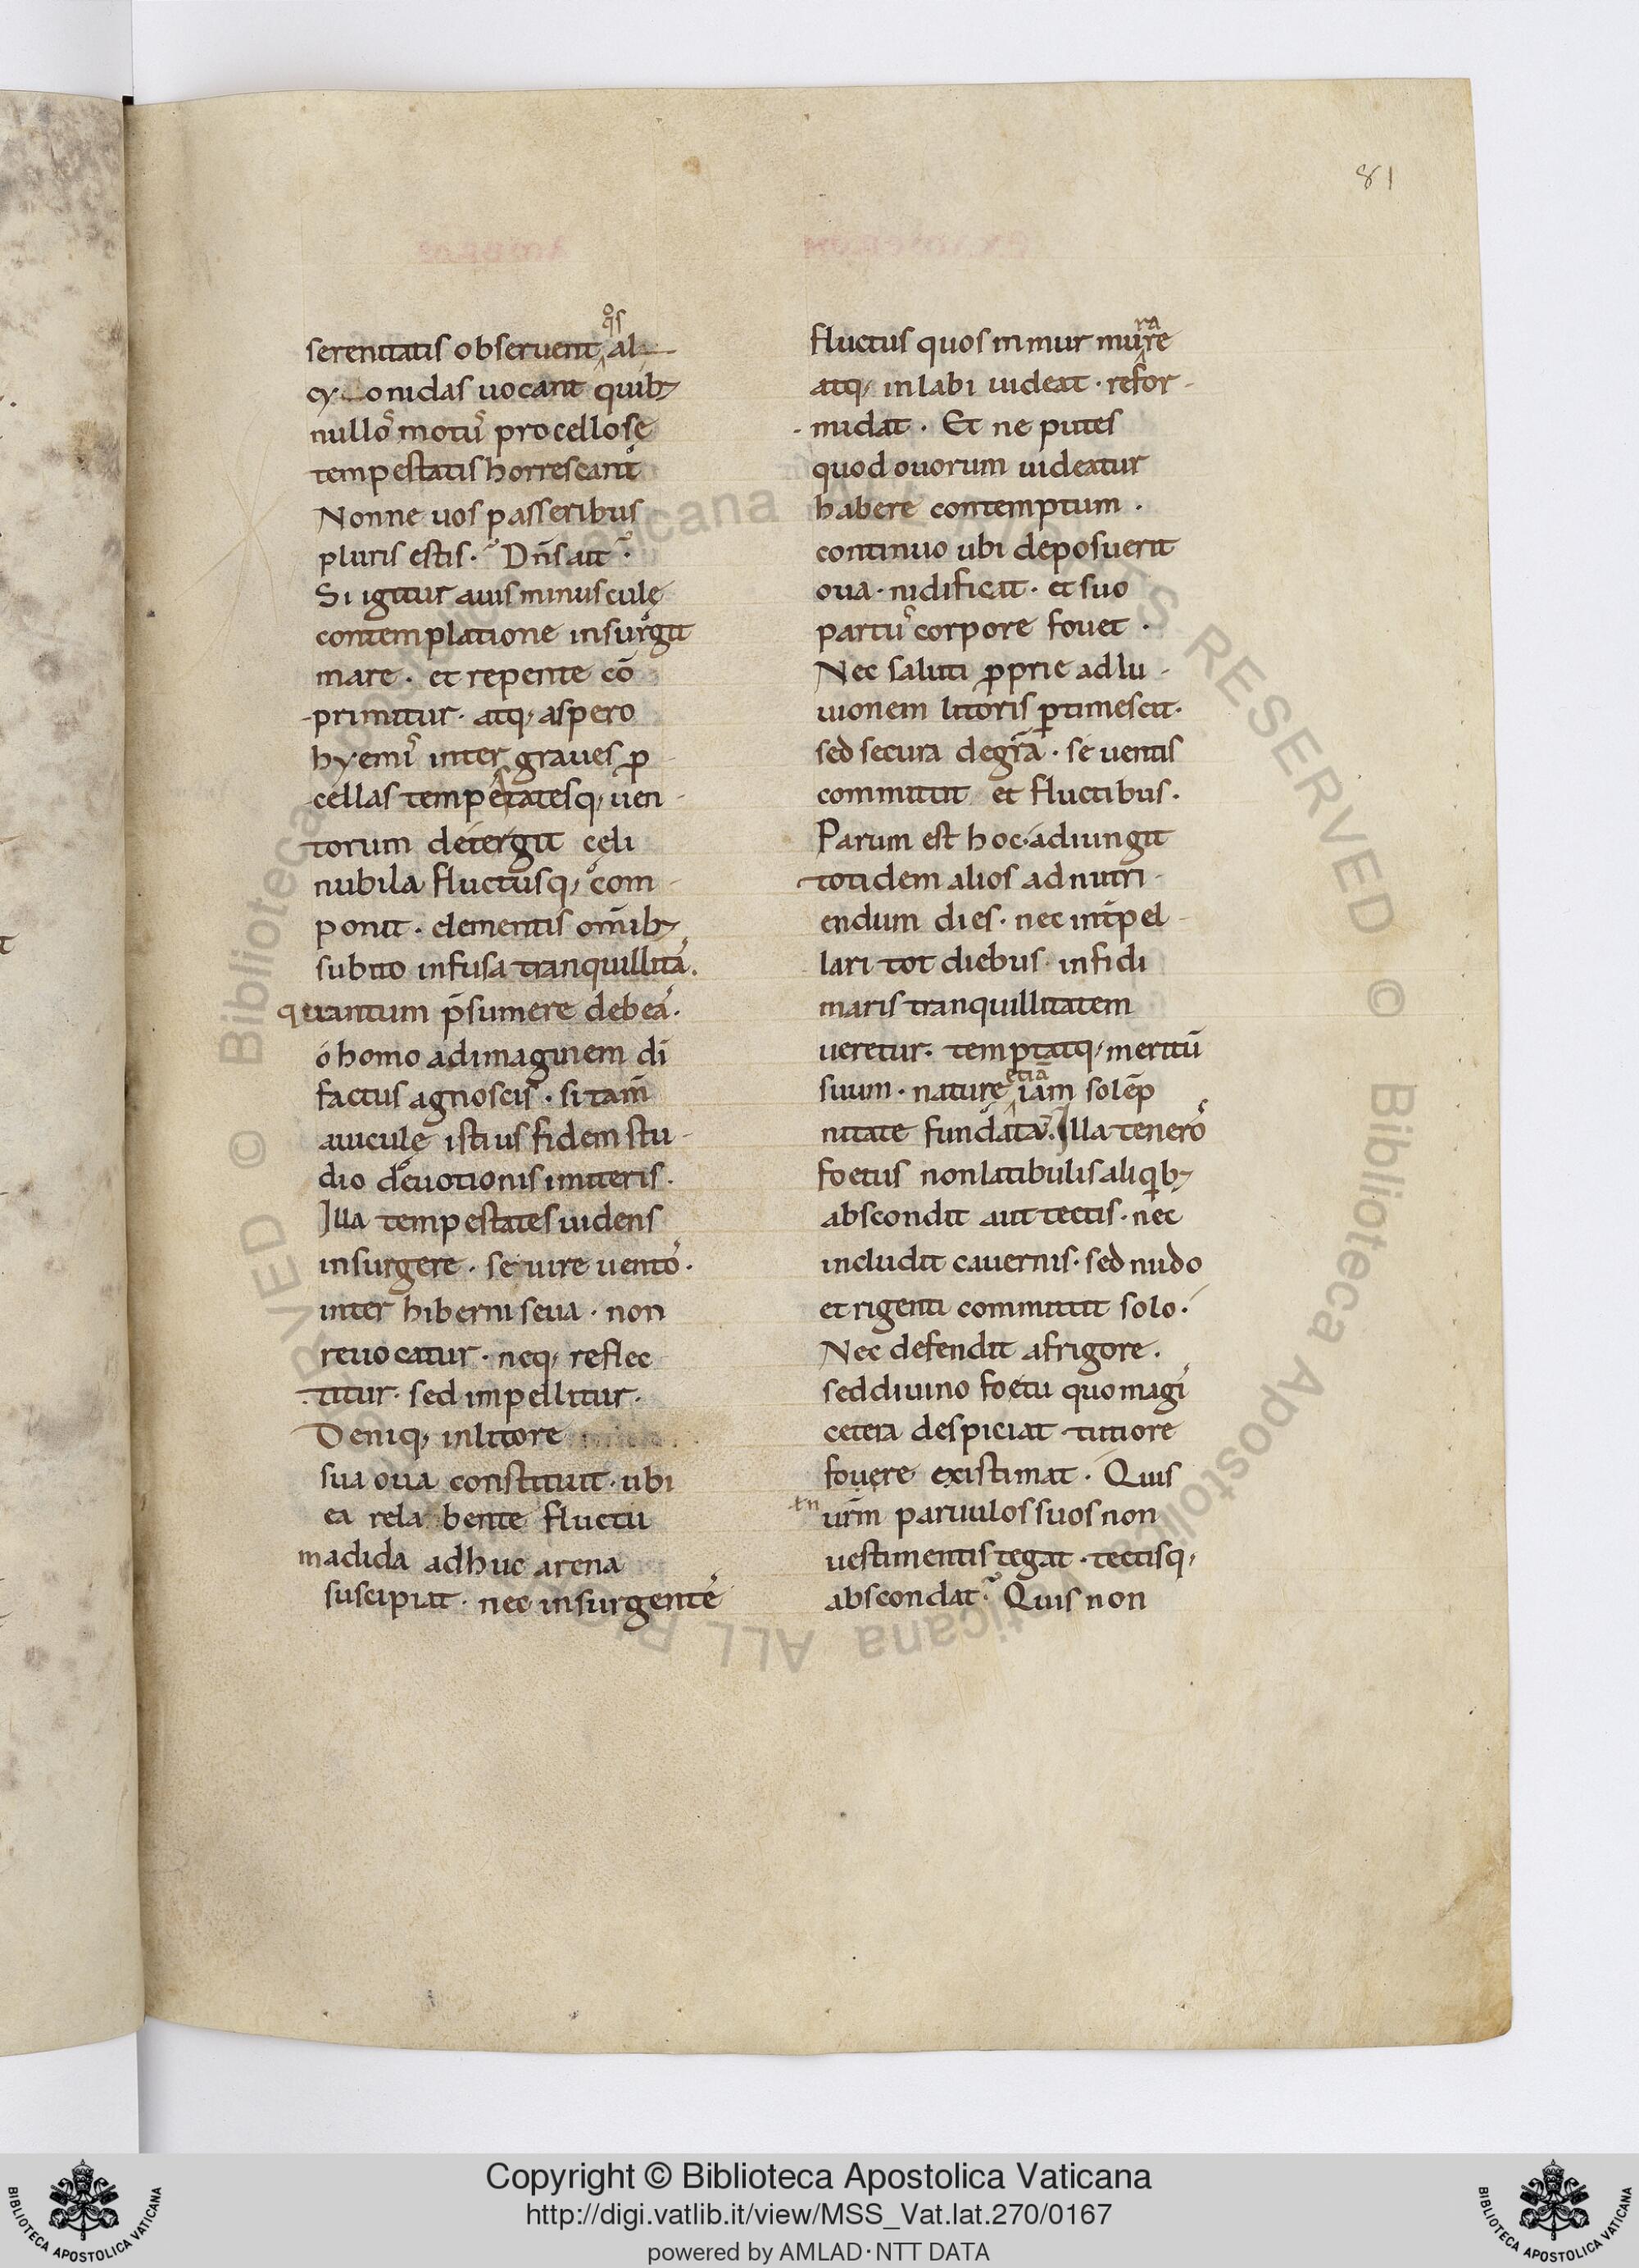 81
serenitatis obseruent q̊s al
cyonidas uocant quib;
nullo᷒ motu᷒ procellose
tempestatis horrescant
Nonne uos passeribus
pluris estis. Dn̄s ait.
Si igitur auis minusculę
contemplatione insurgit
mare. et repente cō
primitur. atq; aspero
hyemi᷒ inter graues ꝓ
cellas tempetatesq; uen
torum detergit cęli
nubila fluctusq; com
ponit. elementis om̄ib;
subito infusa tranquillita᷒.
quantum p̄sumere debea᷒.
o homo ad imaginem dī
factus agnoscis. si tam̄
auiculę istius fidem stu
dio deuotionis imiteris.
Illa tempestates uidens
insurgere. seuire uento᷒.
inter hiberni seua. non
reuocatur. neq; reflec
titur. sed impellitur.
Deniq; in litore
sua oua constituit. ubi
ea relabente fluctu
madida adhuc arena
suscipiat. nec insurgente᷒
fluctus quos in mur murare
atq; inlabi uideat. refor
midat. Et ne putes
quod ouorum uideatur
habere contemptum.
continuo ubi deposuerit
oua. nidificat. et suo
partu᷒ corpore fouet.
Nec saluti ꝓprie adlu
uionem litoris ꝑtimescit.
sed secura degr̄a. se uentis
committit et fluctibus.
Parum est hoc. adiungit
totidem alios ad nutri
endum dies. nec int̄pel
lari tot diebus infidi
maris tranquillitatem
ueretur. temptatq; meritū
suum. naturę etiā iam solēp
nitate fundata᷒. Illa tenero᷒
foetus non latibulis aliqib;
abscondit aut tectis. nec
includit cauernis. sed nudo
et rigenti committit solo.
Nec defendit a frigore.
sed diuino foetu quo magi᷒
cetera despiciat tutiore
fouere existimat. Quis
tn ur̄m paruulos suos non
uestimentis tegat. tectisq;
abscondat. Quis non
Copyright © Biblioteca Apostolica Vaticana
http://digi.vatlib.it/view/MSS_Vat.lat.270/0167
powered by AMLAD·NTT DATA
BIBLIOTECA APOSTOLICA VATICANA
BIBLIOTECA APOSTOLICA VATICANA
© Biblioteca Apostolica Vaticana ALL RIGHTS RESERVED
© Biblioteca Apostolica Vaticana ALL RIGHTS RESERVED